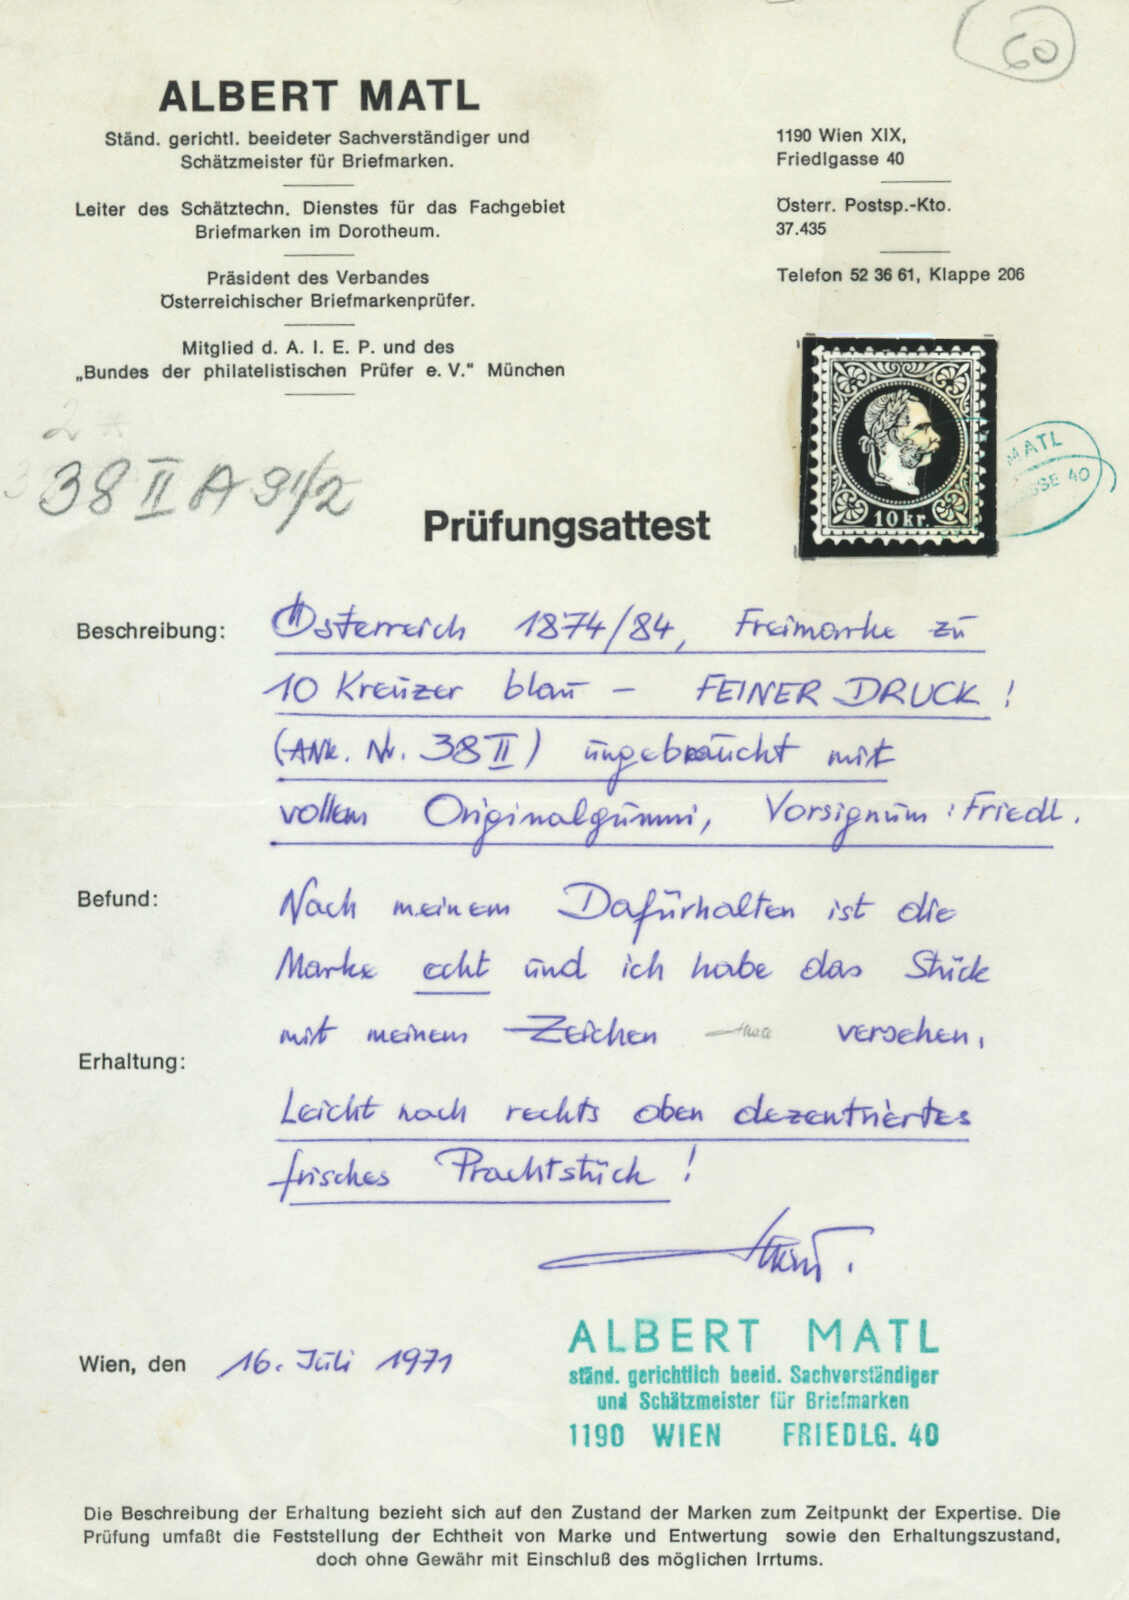 60
ALBERT MATL
Ständ. gerichtl. beeideter Sachverständiger und
Schätzmeister für Briefmarken.
Leiter des Schätztechn. Dienstes für das Fachgebiet
Briefmarken im Dorotheum.
Präsident des Verbandes
Österreichischer Briefmarkenprüfer.
Mitglied d. A. I. E. P. und des
„Bundes der philatelistischen Prüfer e. V.“ München
1190 Wien XIX,
Friedlgasse 40
Österr. Postsp.-Kto.
37.435
Telefon 52 36 61, Klappe 206
10 kr.
MATL
SSE 40
38 II A 9 1/2
Prüfungsattest
Beschreibung: Österreich 1874/84, Freimarke zu
10 Kreuzer blau – FEINER DRUCK!
(ANK. Nr. 38 II) ungebraucht mit
vollem Originalgummi, Vorsignum: Friedl.
Befund: Nach meinem Dafürhalten ist die
Marke echt und ich habe das Stück
mit meinem Zeichen versehen.
Erhaltung:
Leicht nach rechts oben dezentriertes
frisches Prachtstück!
Wien, den 16. Juli 1971
ALBERT MATL
ständ. gerichtlich beeid. Sachverständiger
und Schätzmeister für Briefmarken
1190 WIEN FRIEDLG. 40
Die Beschreibung der Erhaltung bezieht sich auf den Zustand der Marken zum Zeitpunkt der Expertise. Die
Prüfung umfaßt die Feststellung der Echtheit von Marke und Entwertung sowie den Erhaltungszustand,
doch ohne Gewähr mit Einschluß des möglichen Irrtums.